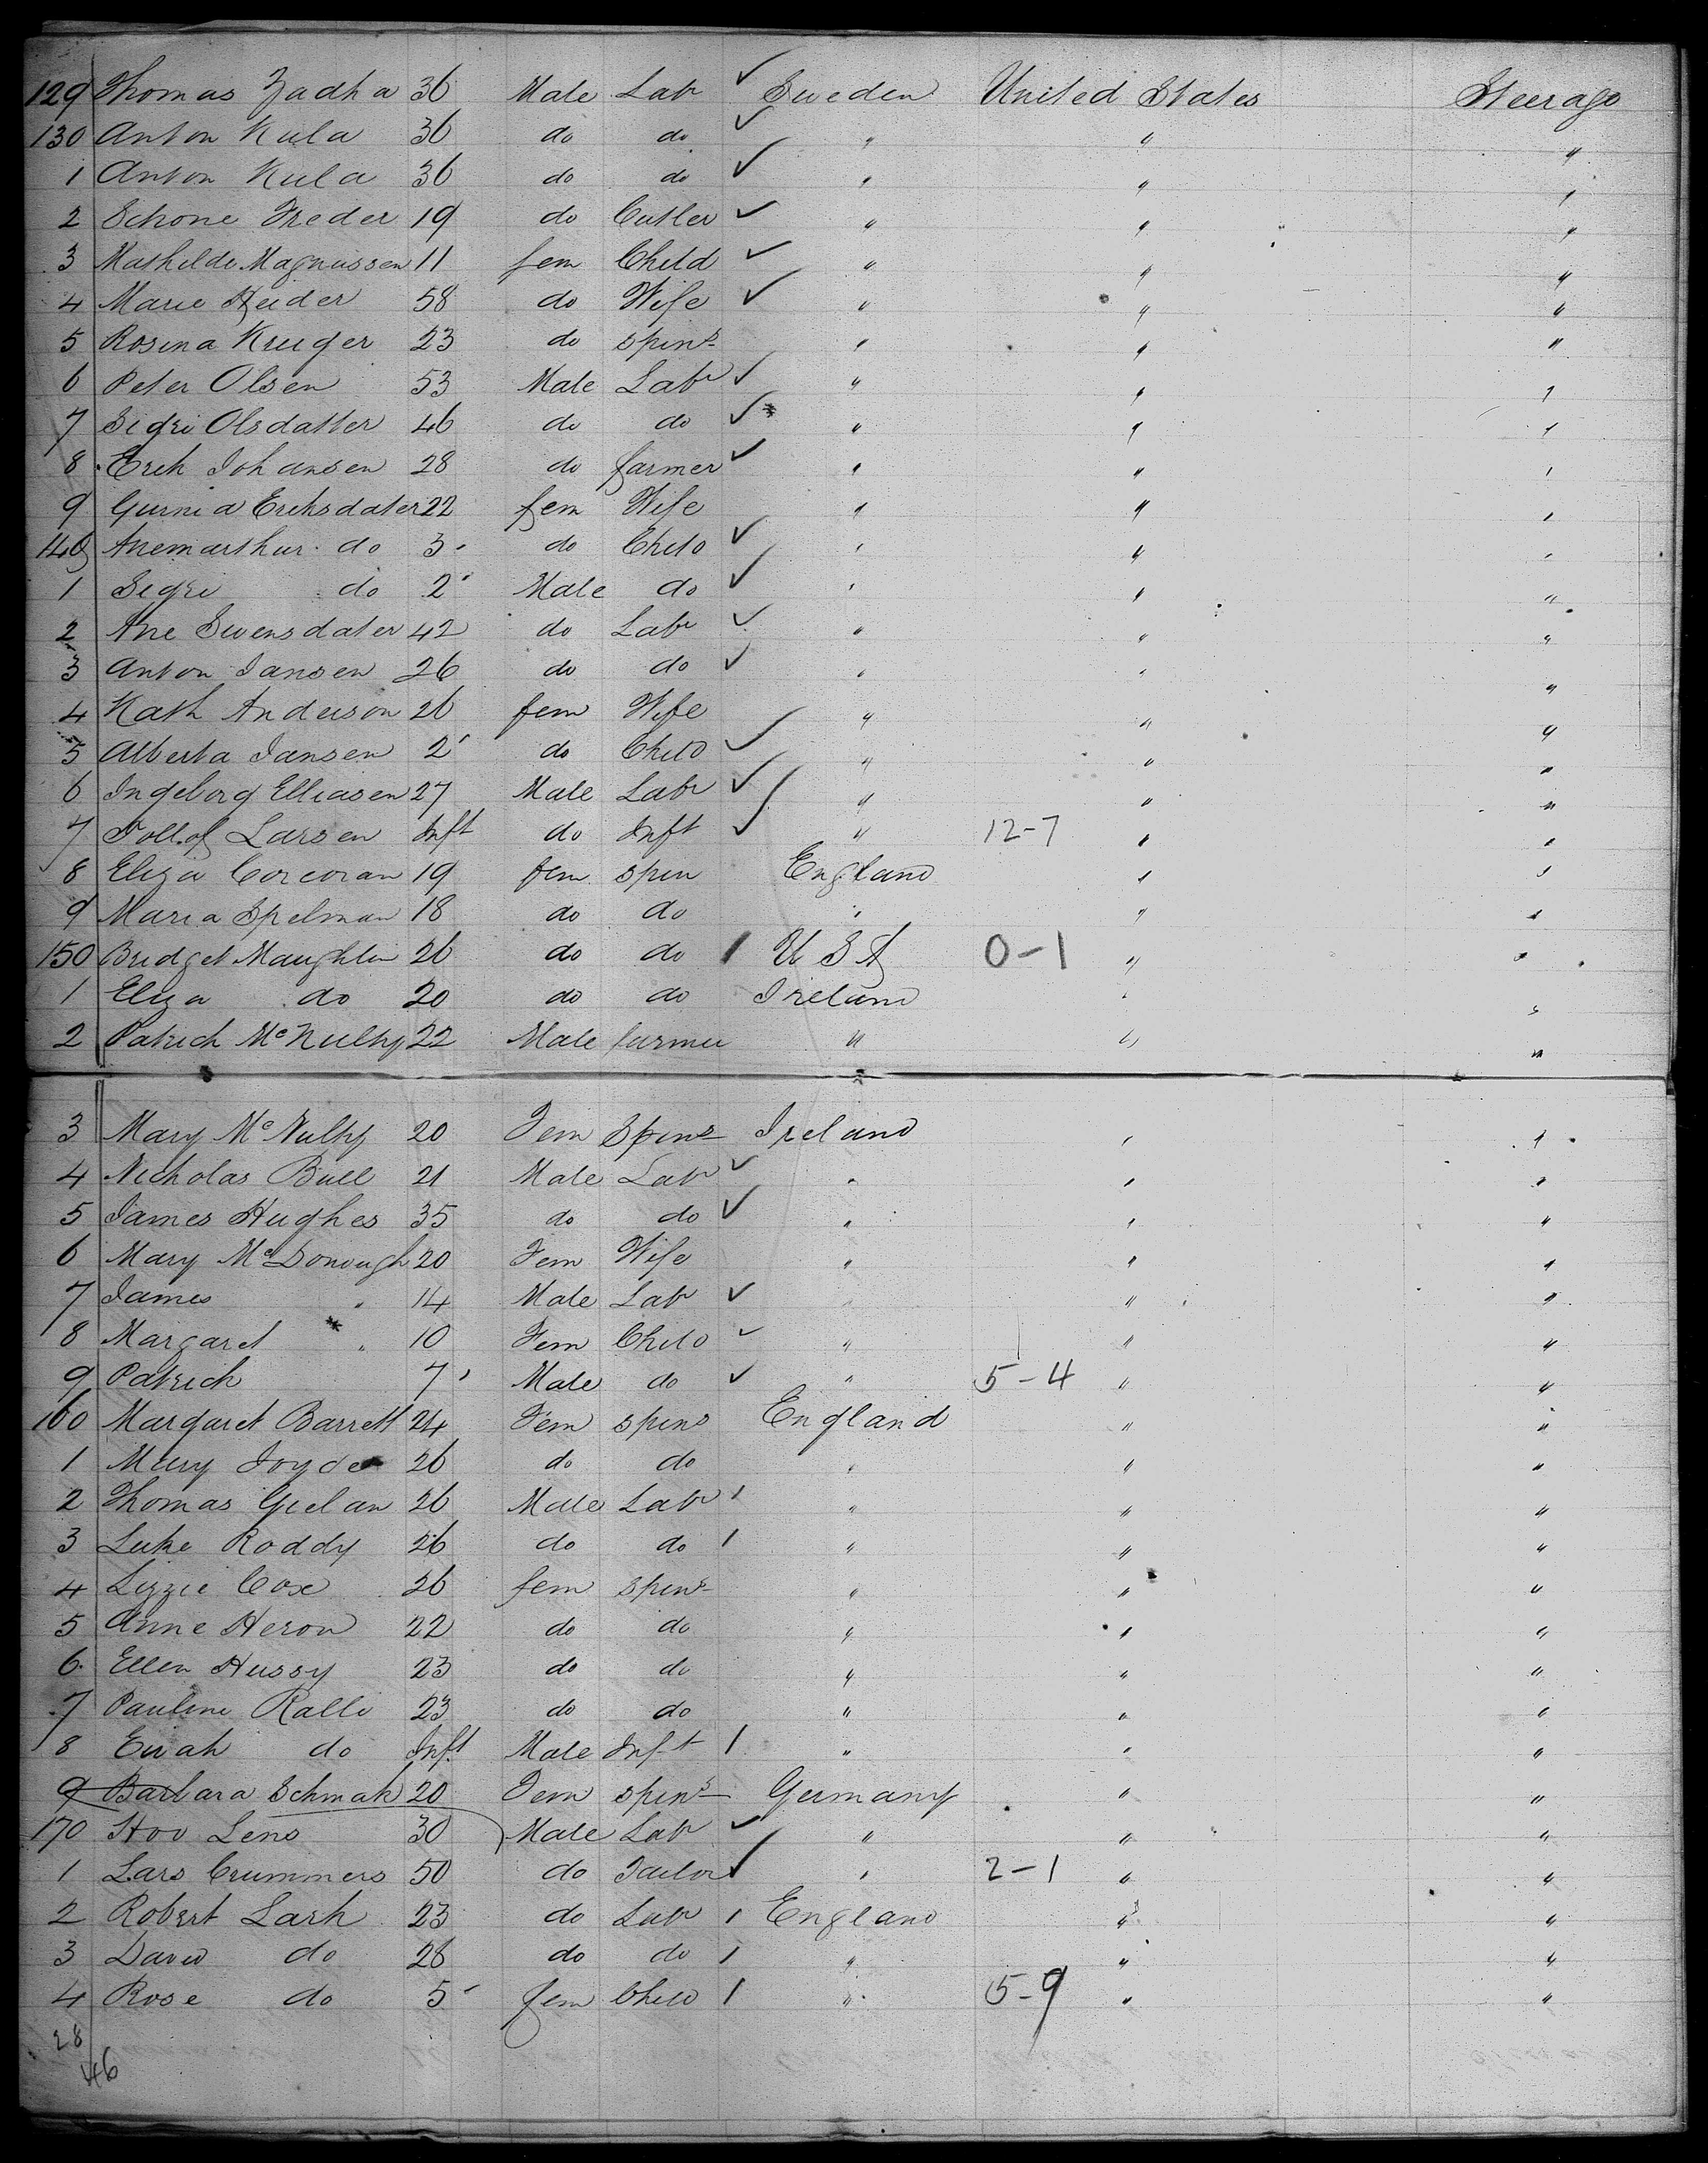 129 Thomas Zadha 36 Male Labr ✓ Sweden United States Steerage
130 Anton Kula 36 do do ✓ " " "
1 Anton Kula 36 do do ✓ " " "
2 Schone Freder 19 do Cutler ✓ " " "
3 Mathilde Magnussen 11 fem Child ✓ " " "
4 Marie Heider 58 do Wife ✓ " " "
5 Rosina Kruger 23 do spins " " "
6 Peter Olsen 53 Male Labr ✓ " " "
7 Sigri Olsdatter 46 do do ✓ " " "
8 Erik Johansen 28 do farmer ✓ " " "
9 Gurnia Eriksdater 22 fem Wife " " "
140 Anemarthur do 3 do Child ✓ " " "
1 Sigri do 2 Male do ✓ " " "
2 Ane Swensdater 42 do Labr ✓ " " "
3 Anton Jansen 26 do do ✓ " " "
4 Kath Anderson 26 fem Wife " " "
5 Alberta Jansen 2 do Child ✓ " " "
6 Ingeborg Elliasen 27 Male Labr ✓ " " "
7 Tollof Larsen Inft do Inft ✓ " 12-7 " "
8 Eliza Corcoran 19 fem spin England " "
9 Maria Spelman 18 do do " " "
150 Bridget Maughlin 26 do do / U S A 0-1 " "
1 Eliza do 20 do do Ireland " "
2 Patrick McNulty 22 Male farmer " " "
3 Mary McNulty 20 Fem Spins Ireland " "
4 Nicholas Bull 21 Male Labr ✓ " " "
5 James Hughes 35 do do ✓ " " "
6 Mary McDonough 20 Fem Wife " " "
7 James " 14 Male Labr ✓ " " "
8 Margaret " 10 Fem Child ✓ " " "
9 Patrick 7 Male do ✓ " 5-4 " "
160 Margaret Barrett 24 Fem spins England " "
1 Mary Joyce 26 do do " " "
2 Thomas Geelan 26 Male Labr / " " "
3 Luke Roddy 26 do do / " " "
4 Lizzie Cox 26 fem spins " " "
5 Anne Heron 22 do do " " "
6 Ellen Hussy 23 do do " " "
7 Pauline Ralli 23 do do " " "
8 do Inft Male Inft / " " "
9 Barbara Schmak 20 Fem spins Germany " "
170 Hov Lens 30 Male Labr ✓ " " "
1 Lars Crummers 50 do Tailor ✓ " 2-1 " "
2 Robert Lark 23 do Labr / England " "
3 David do 28 do do / " " "
4 Rose do 5 fem Child / " 5-9 " "
28
46